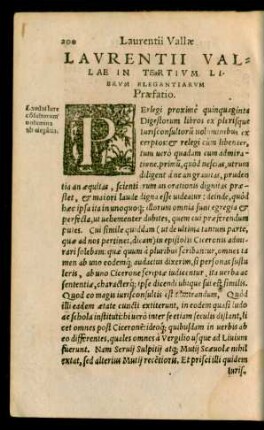 200
Laurentii Vallæ
LAVRENTII VAL-
LAE IN TERTIVM LI-
BRVM ELEGANTIARVM
Præfatio.
Erlegi proximè quinquaginta
Digestorum libros ex plerisque
iurisconsultorū uoluminibus ex
cerptos: & relegi cùm libenter,
tum uerò quadam cum admira-
tione. primū, quòd nescias, utrum
diligentiane an grauitas, pruden
tia an æquitas, scientia rerum an orationis dignitas præ-
stet, & maiori laude digna esse uideatur: deinde, quòd
hæc ipsa ita in unoquoq; illorum omnia sunt egregia &
perfecta, ut uehementer dubites, quem cui præferendum
putes. Cui simile quiddam (ut de ultima tantum parte,
quæ ad nos pertinet, dicam) in epistolis Ciceronis admi-
rari solebam: quæ quum à pluribus scribantur, omnes ta
men ab uno eodemq; audacius dixerim, si personas sustu
leris, ab uno Cicerone scriptæ iudicentur, ita uerba ac
sententiæ, characterq; ipse dicendi ubique sui est similis.
Quòd eo magis iurisconsultis est admirandum, Quòd
illi eadem ætate cuncti extiterunt, in eodem quasi ludo
ac schola instituti: hi uerò inter se etiam seculis distant, li
cet omnes post Ciceronē: ideoq; quibusdam in uerbis ab
eo differentes, quales omnes à Vergilio usque ad Liuium
fuerunt. Nam Seruij Sulpitij atq; Mutij Scæuolæ nihil
extat, sed alterius Mutij recētioris. Et prisci illi quidem
iuris.